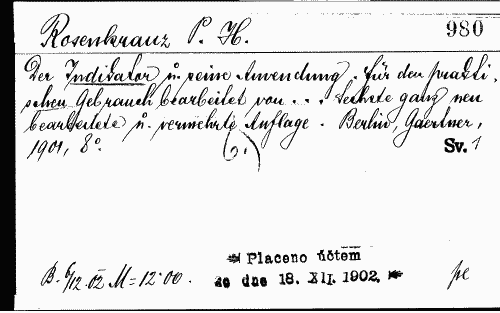 Rosenkranz P. H. 980
Der Indikator u. seine Anwendung. Für den prakti-
schen Gebrauch bearbeitet von ... Sechste ganz neu
bearbeitete u. vermehrte Auflage. Berlin, Gaertner,
1901, 8°. (6.) Sv. 1
B. 6/12.02 M = 12·00.
Placeno účtem
ze dne 18. XII. 1902.
pe